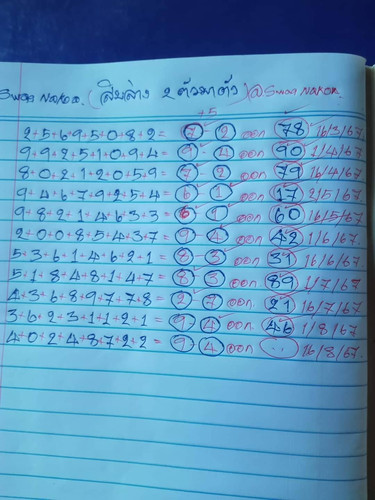 Swon Nakor. (สิบล่าง 2 ตัวมาตัว) @ Swon Nakor.
+5
2+5+6+9+5+0+8+2= 7-2 ออก 78 16/3/67.
9+9+2+5+1+0+9+4= 9-4 ออก 90 1/4/67.
8+0+2+1+2+0+5+9= 7-2 ออก 79 16/4/67.
9+4+6+7+9+2+5+4= 6-1 ออก 17 2/5/67.
9+8+2+1+4+6+3+3= 6-1 ออก 60 16/5/67.
2+0+0+8+5+4+3+7= 9-4 ออก 42 1/6/67.
5+3+6+1+4+6+2+1= 8-3 ออก 31 16/6/67.
5+1+8+4+8+1+4+7= 8-3 ออก 89 1/7/67.
4+3+6+8+9+7+7+8= 2-7 ออก 21 16/7/67.
3+6+2+3+1+1+2+1= 9-4 ออก 46 1/8/67.
4+0+2+4+8+7+2+2= 9 4 ออก .. 16/8/67.